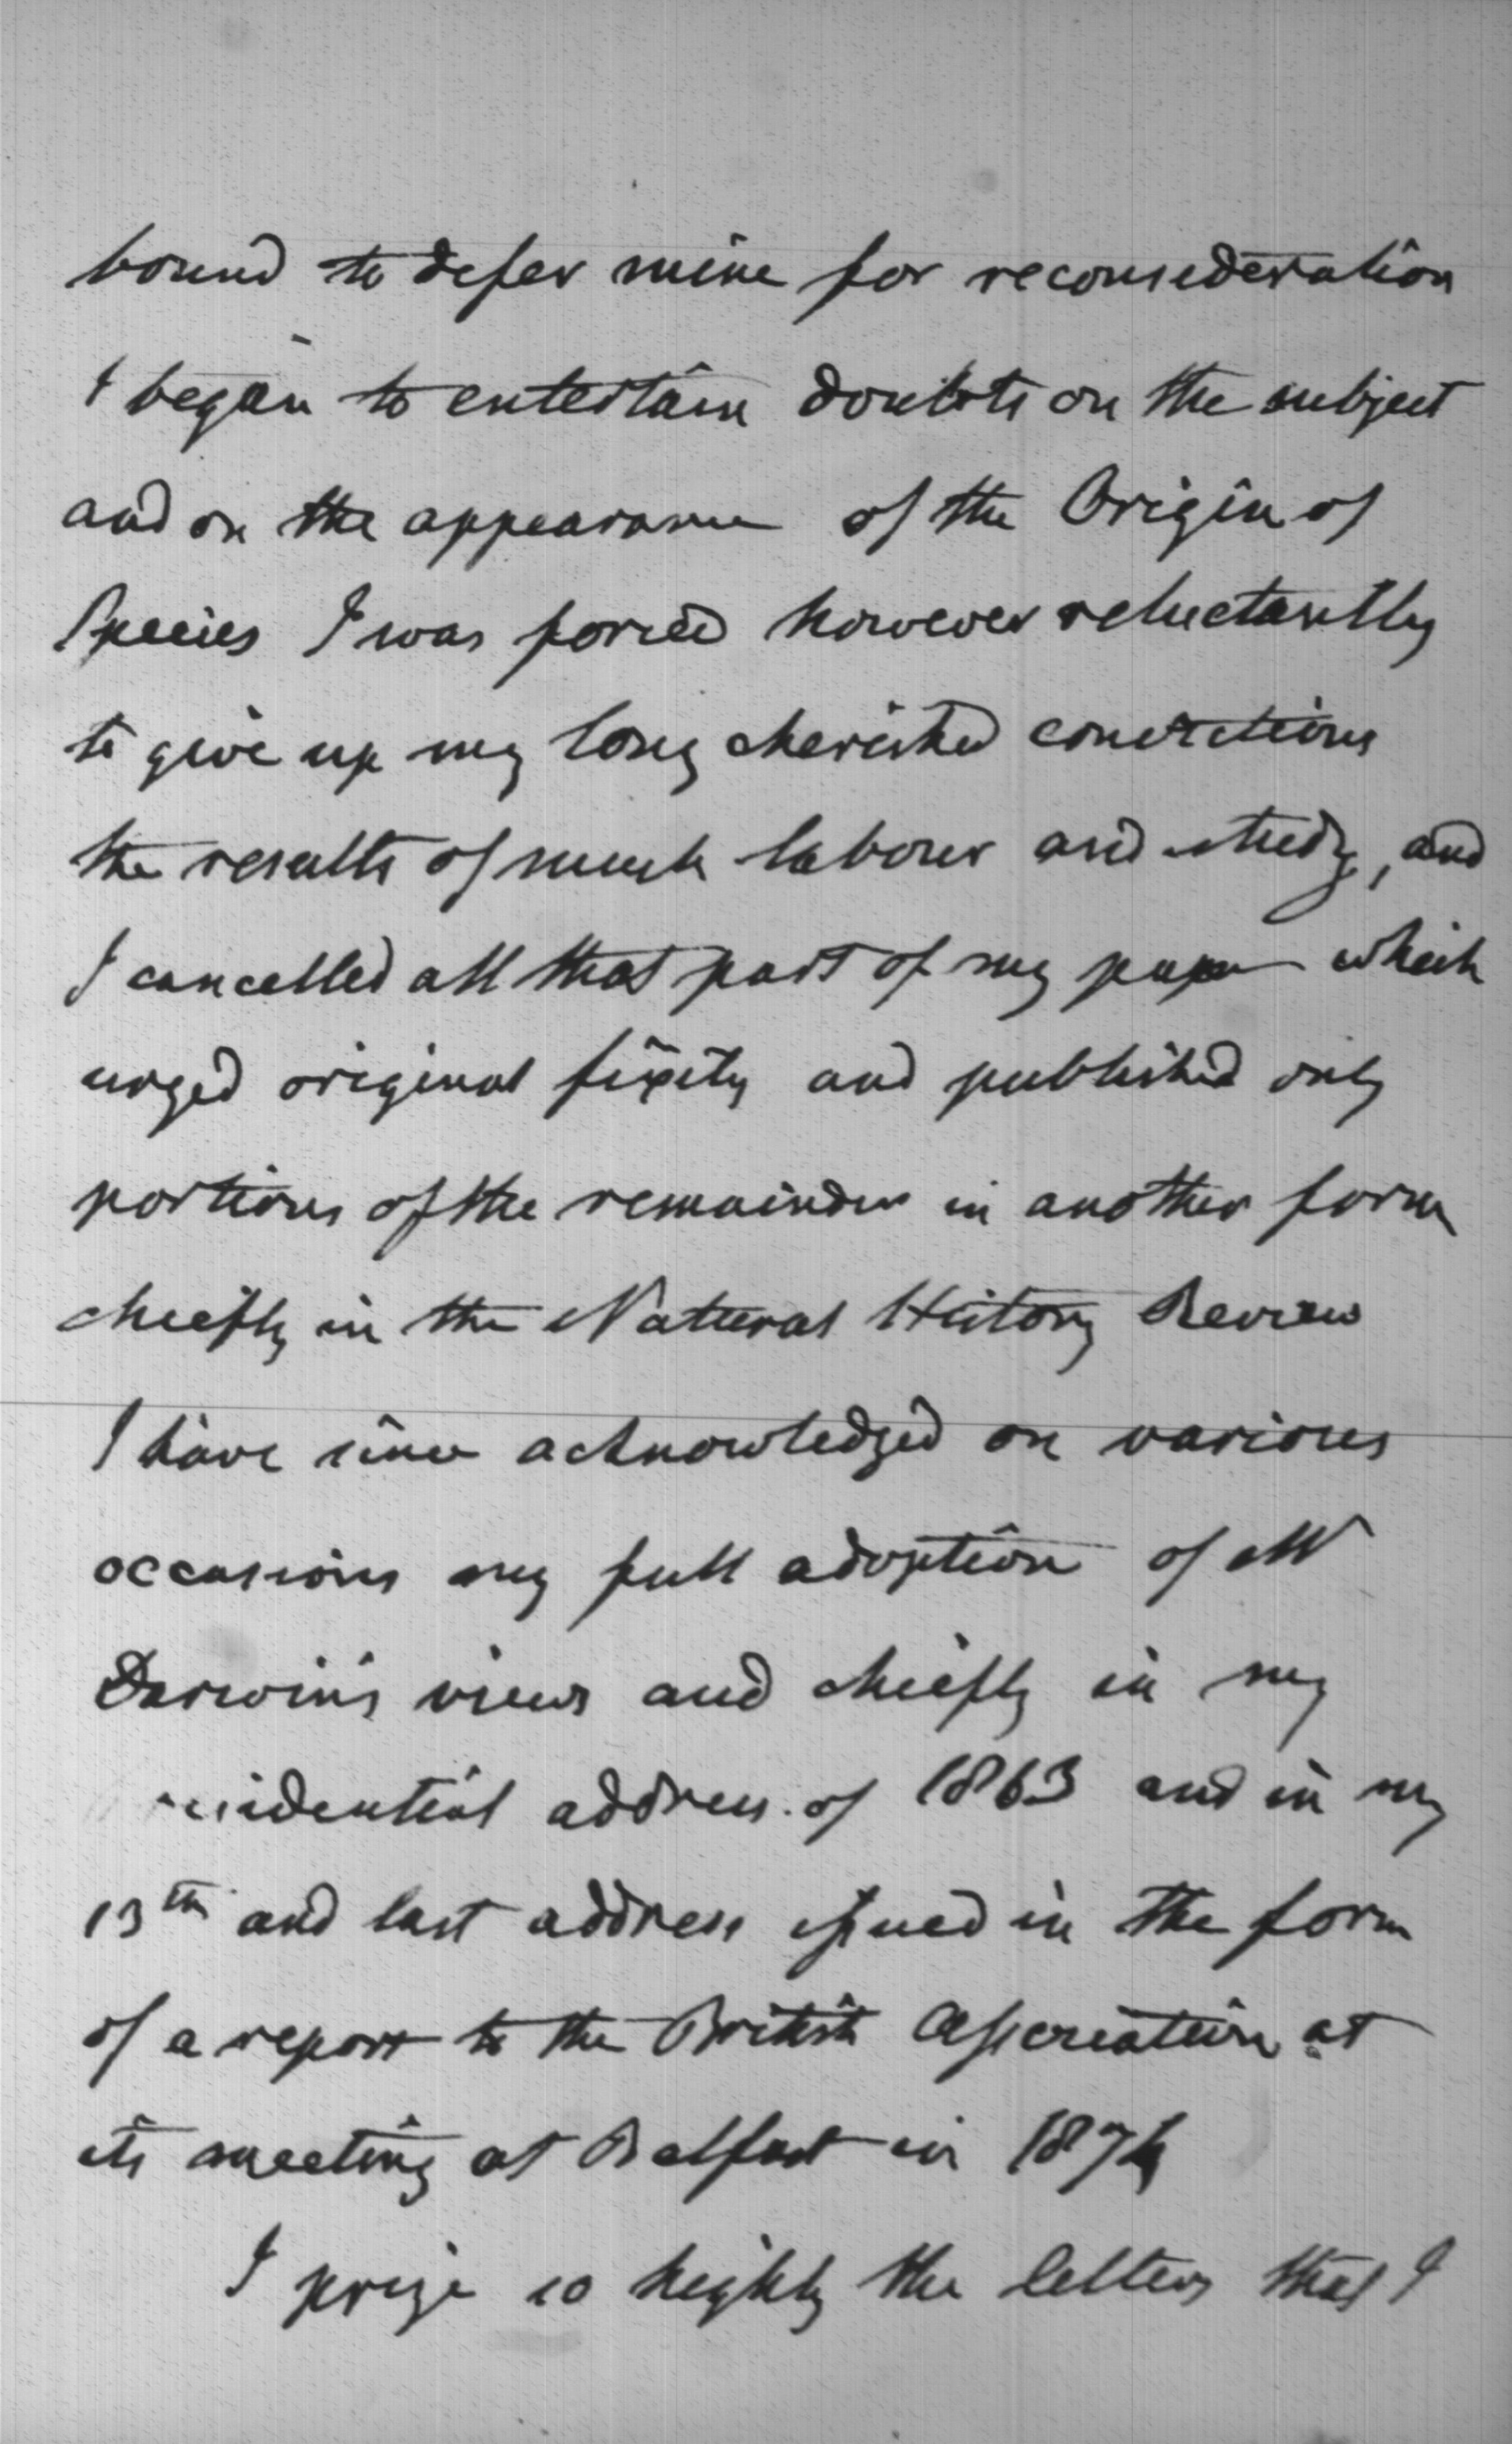 bound to defer mine for reconsideration
I began to entertain doubts on the subject
and on the appearance of the Origin of
Species I was forced however reluctantly
to give up my long cherished convictions
the results of much labour and study, and
I cancelled all that part of my paper which
urged original fixity and published only
portions of the remainder in another form
chiefly in the Natural History Review
I have since acknowledged on various
occasions my full adoption of Mr
Darwin's views and chiefly in my
residential address of 1863 and in my
13th and last address issued in the form
of a report to the British Association at
its meeting at Belfast in 1874
I prize so highly the letters that I